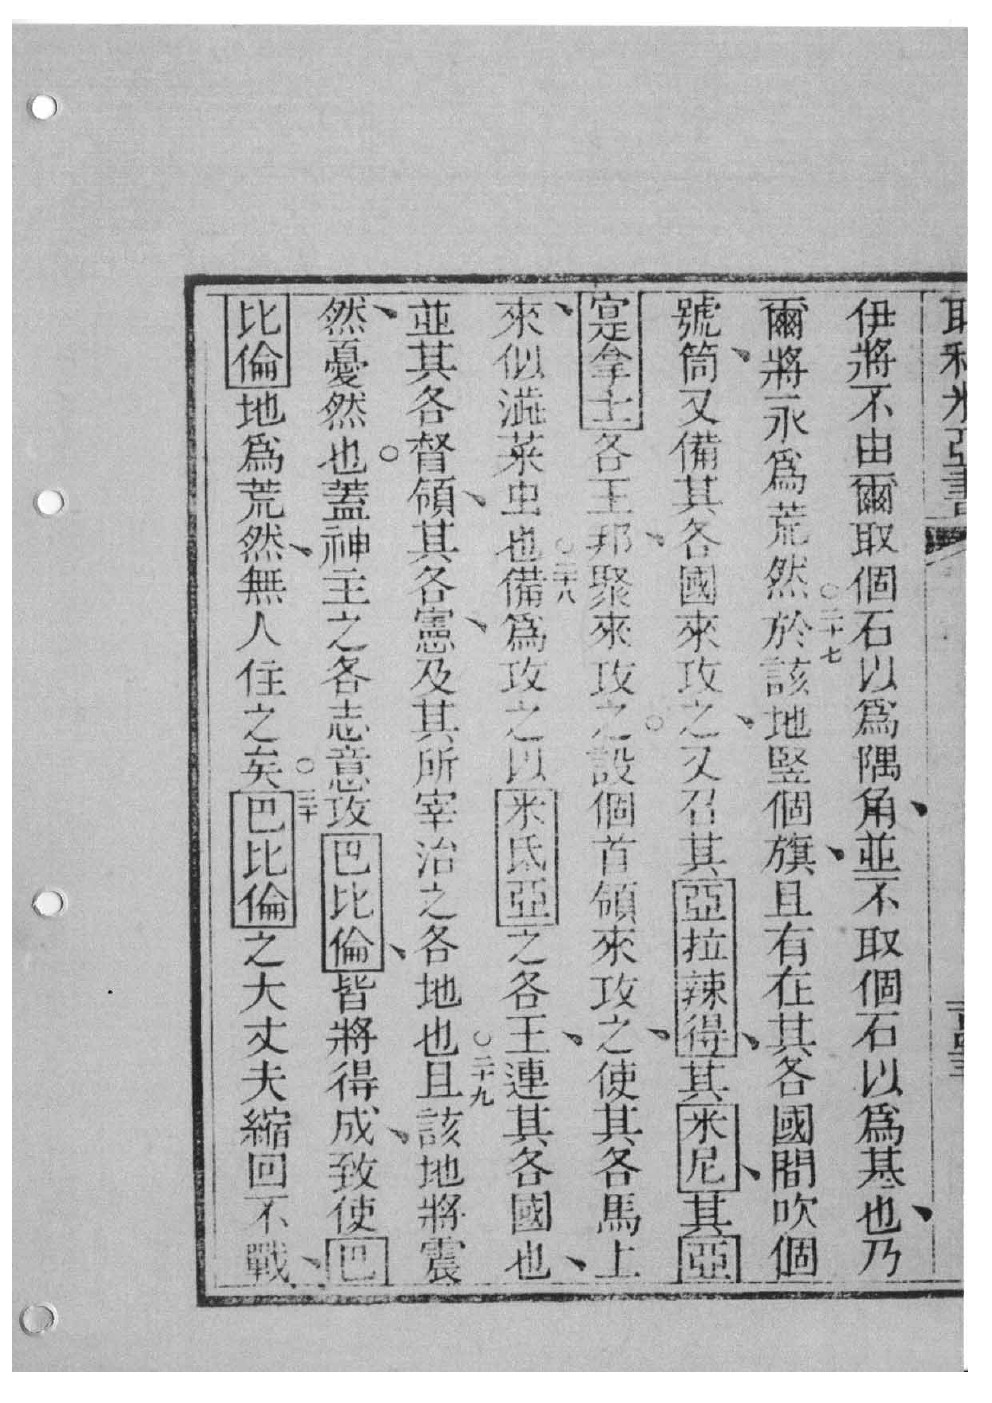 耶利米亞書
伊將不由爾取個石以爲隅角、並不取個石以爲基也、乃
爾將永爲荒然○二十七於該地豎個旗、且有在其各國間吹個
號筒、又備其各國來攻之、又召其亞拉辣得、其米尼、其亞
寔拿士各王邦、聚來攻之○設個首領來攻之、使其各馬上
來、似滋菜虫也○二十八備爲攻之以米氐亞之各王、連其各國也、
並其各督領、其各憲、及其所宰治之各地也○二十九且該地將震
然、憂然也○蓋神主之各志意攻巴比倫、皆將得成、致使巴
比倫地爲荒然、無人住之矣○三十巴比倫之大丈夫縮回不戰、